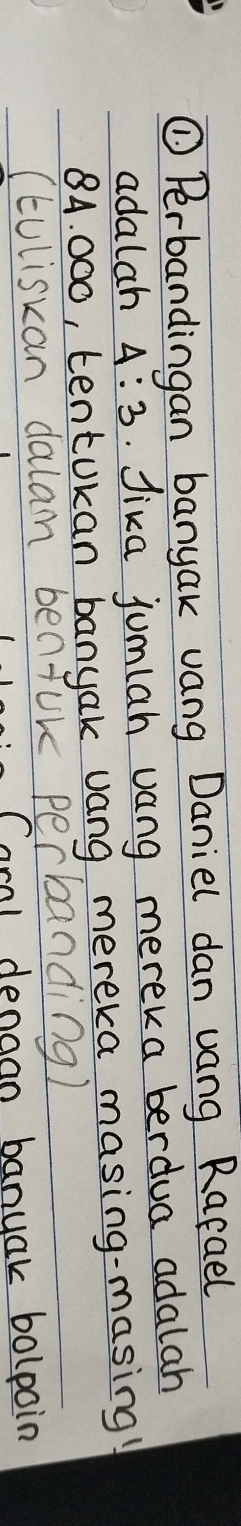 ① Perbandingan banyak uang Daniel dan uang Rafael
adalah 4:3. Jika jumlah uang mereka berdua adalah
84.000, tentukan banyak uang mereka masing-masing!
(tuliskan dalam bentuk perbanding)
Carol dengan banyak bolpoin